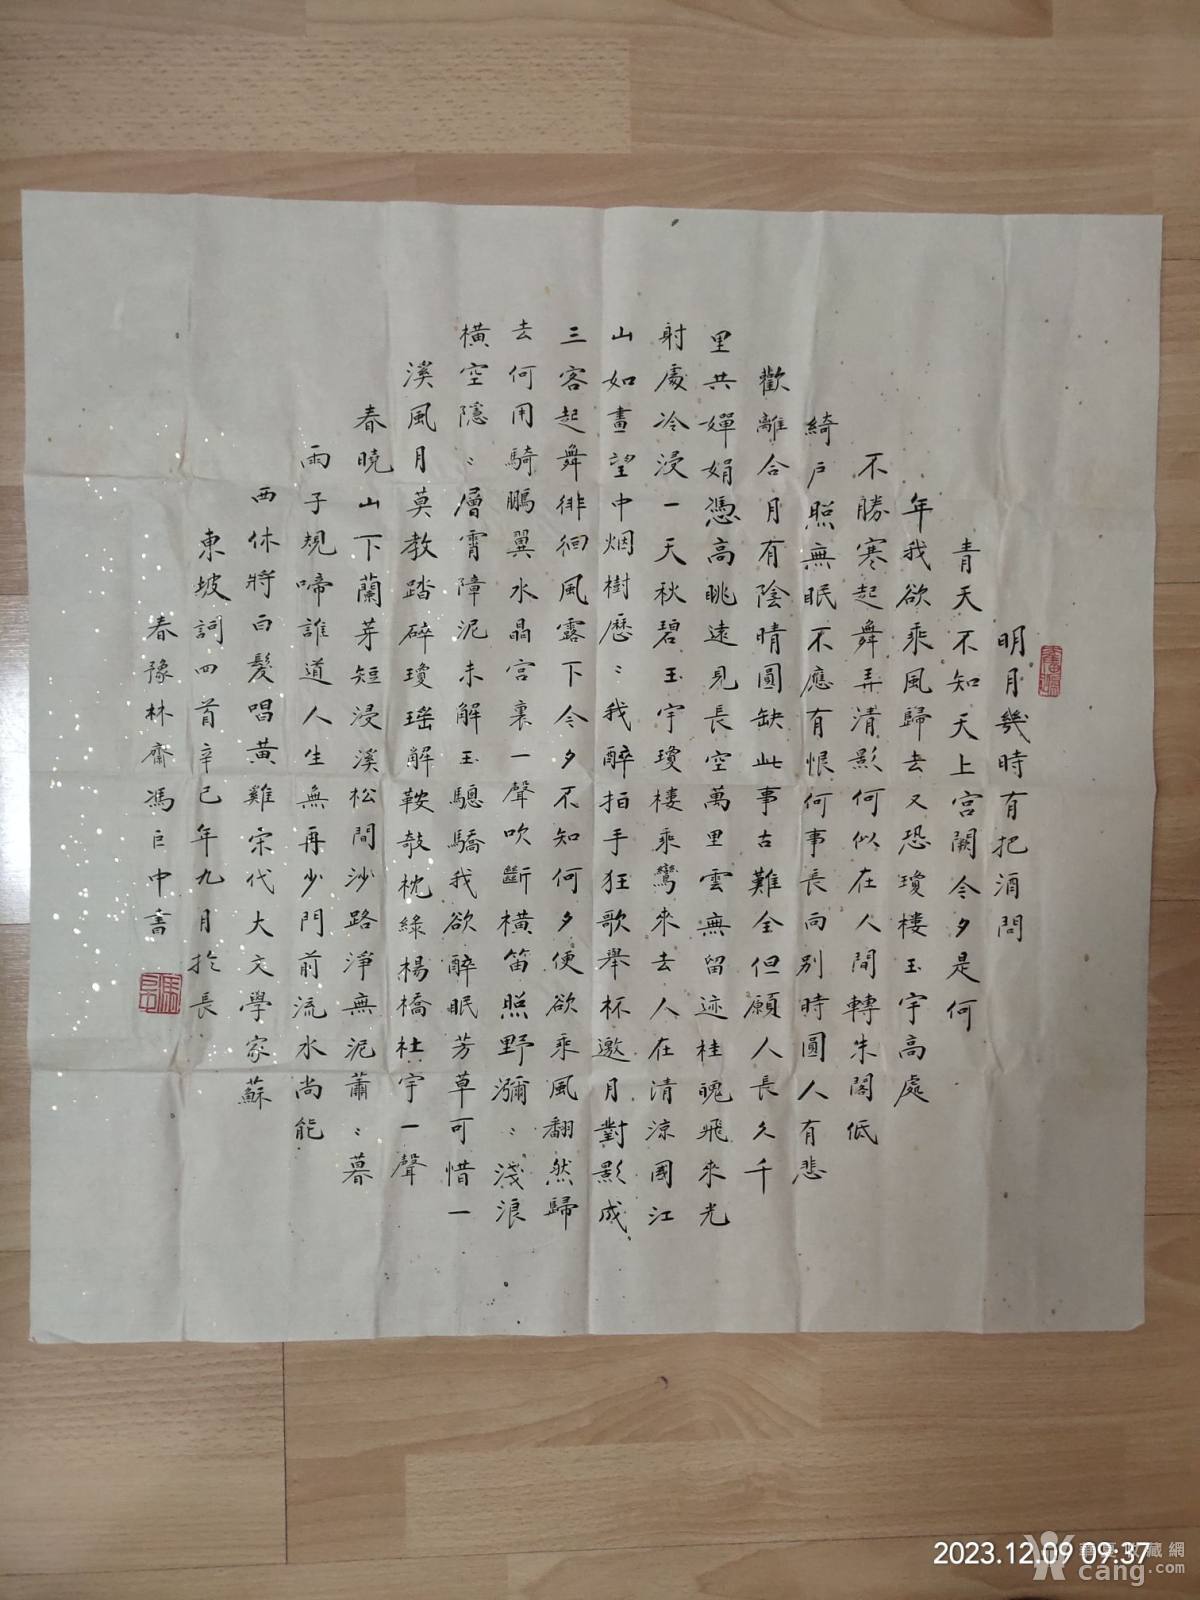 明月幾時有把酒問
青天不知天上宮闕今夕是何
年我欲乘風歸去又恐瓊樓玉宇高處
不勝寒起舞弄清影何似在人間轉朱閣低
綺户照無眠不應有恨何事長向別時圓人有悲
歡離合月有陰晴圓缺此事古難全但願人長久千
里共嬋娟憑高眺遠見長空萬里雲無留迹桂魄飛來光
射處冷浸一天秋碧玉宇瓊樓乘鸞來去人在清涼國江
山如畫望中烟樹歷〻我醉拍手狂歌舉杯邀月對影成
三客起舞徘徊風露下今夕不知何夕便欲乘風翻然歸
去何用騎鵬翼水晶宮裏一聲吹斷橫笛照野瀰〻淺浪
橫空隱〻層霄障泥未解玉驄驕我欲醉眠芳草可惜一
溪風月莫教踏碎瓊瑤解鞍欹枕綠楊橋杜宇一聲
春曉山下蘭芽短浸溪松間沙路淨無泥蕭〻暮
雨子規啼誰道人生無再少門前流水尚能
西休將白髮唱黃雞宋代大文學家蘇
東坡詞四首辛巳年九月於長
春豫林齋馮巨中書
2023.12.09 09:37
華夏收藏網
cang.com